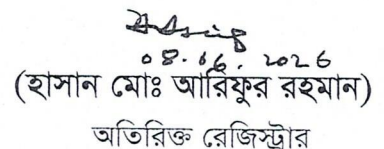 08.06.2026
(হাসান মোঃ আরিফুর রহমান)
অতিরিক্ত রেজিস্ট্রার